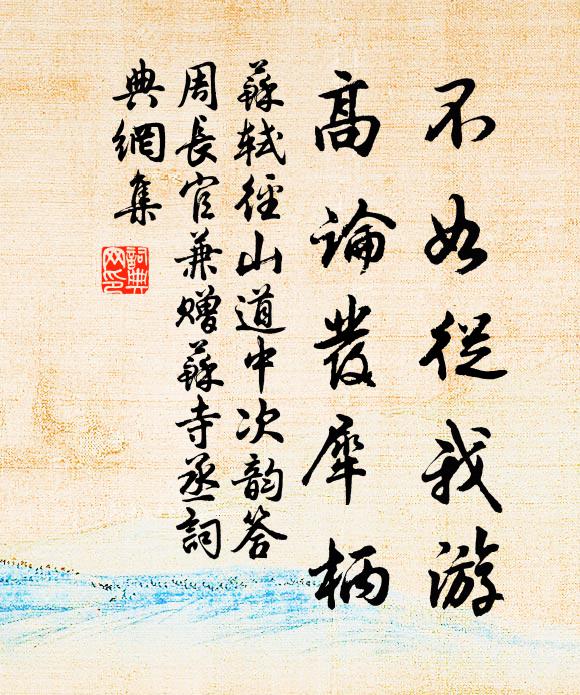 不如從我游
高論發犀柄
蘇軾徑山道中次韵答
周長官兼贈蘇寺丞詞
典網集
詞典
网印